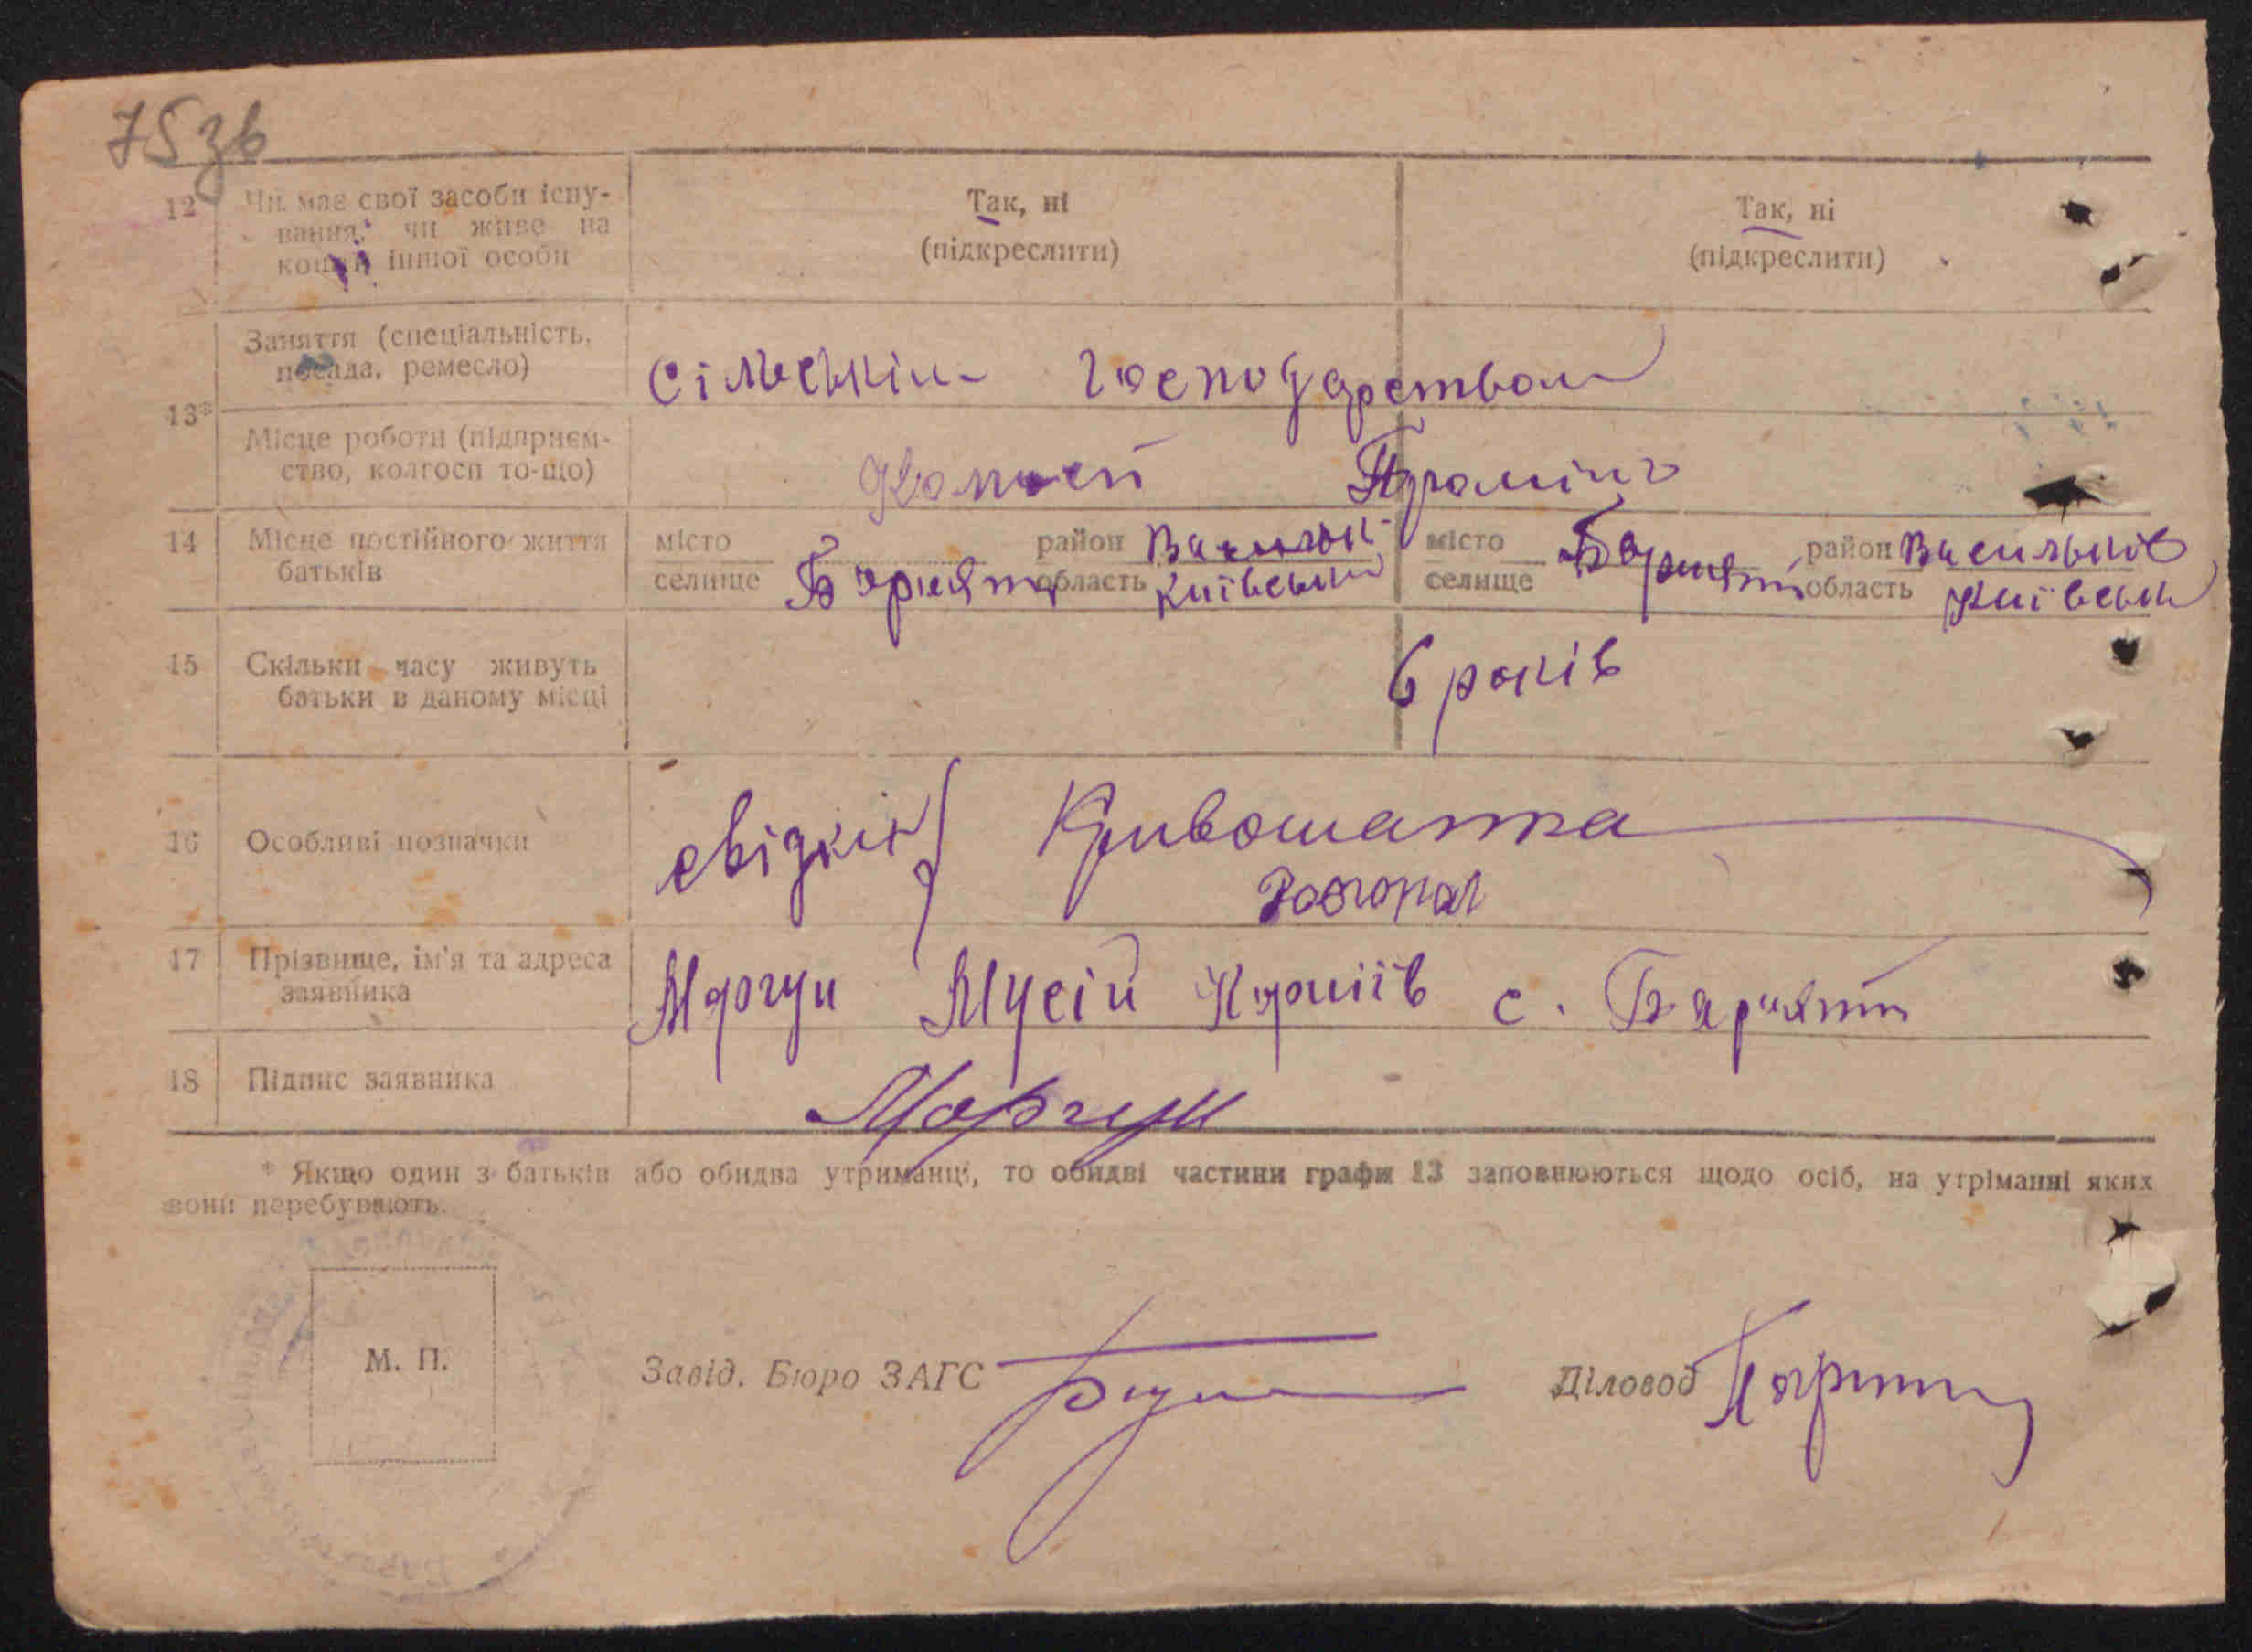 75зв
12 Чи має свої засоби існу-
вання, чи живе на
кошти іншої особи
Так, ні
(підкреслити)
Так, ні
(підкреслити)
13*
Заняття (спеціальність,
посада, ремесло)
Сільським господарством
Місце роботи (підприєм-
ство, колгосп то-що)
14 Місце постійного життя
батьків
місто
селище
район
область Київськ
місто
селище
район Васильків
область Київськ
15 Скільки часу живуть
батьки в даному місці
6 років
16 Особливі позначки
свідки Кривошапка
17 Прізвище, ім'я та адреса
заявника
Моргун Мусій с.
18 Підпис заявника
Моргун
* Якщо один з батьків або обидва утриманці, то обидві частини графи 13 заповнюються щодо осіб, на утріманні яких
вони перебувають.
М. П.
Завід. Бюро ЗАГС
Діловод